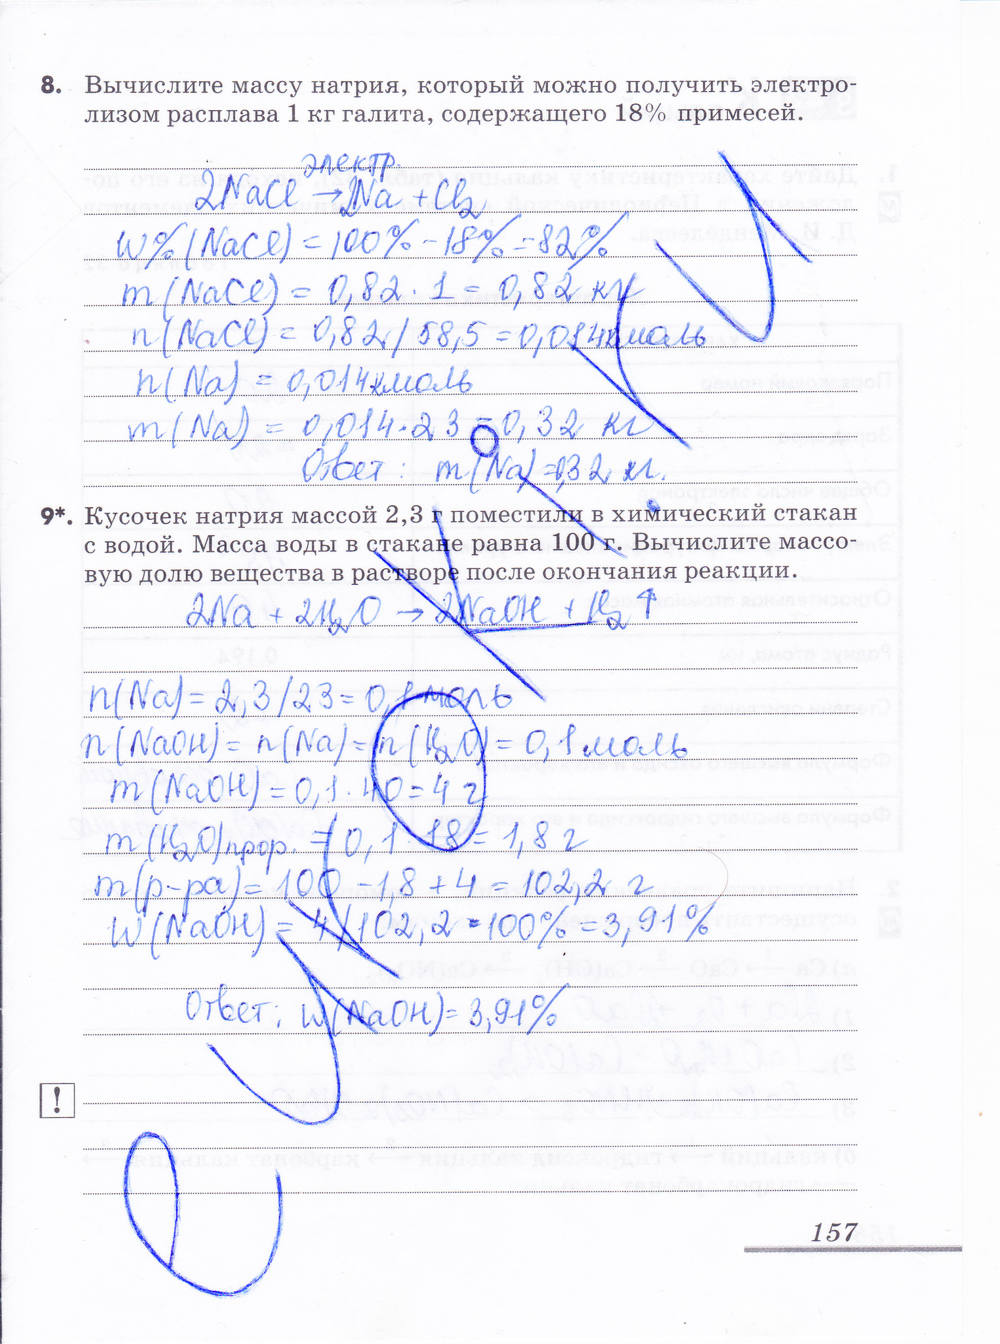 8. Вычислите массу натрия, который можно получить электро-
лизом расплава 1 кг галита, содержащего 18% примесей.
электр.
2NaCl → 2Na + Cl₂
W% (NaCl) = 100% - 18% = 82%
m(NaCl) = 0,82 · 1 = 0,82 кг
n(NaCl) = 0,82/58,5 = 0,014 кмоль
n(Na) = 0,014 кмоль
m(Na) = 0,014 · 23 = 0,32 кг
Ответ: m(Na) = 0,32 кг.
9*. Кусочек натрия массой 2,3 г поместили в химический стакан
с водой. Масса воды в стакане равна 100 г. Вычислите массо-
вую долю вещества в растворе после окончания реакции.
2Na + 2H₂O → 2NaOH + H₂ ↑
n(Na) = 2,3/23 = 0,1 моль
n(NaOH) = n(Na) = n(H₂O) = 0,1 моль
m(NaOH) = 0,1 · 40 = 4 г
m(H₂O)прор. = 0,1 · 18 = 1,8 г
m(р-ра) = 100 - 1,8 + 4 = 102,2 г
W(NaOH) = 4/102,2 · 100% = 3,91%
Ответ: W(NaOH) = 3,91%
!
157